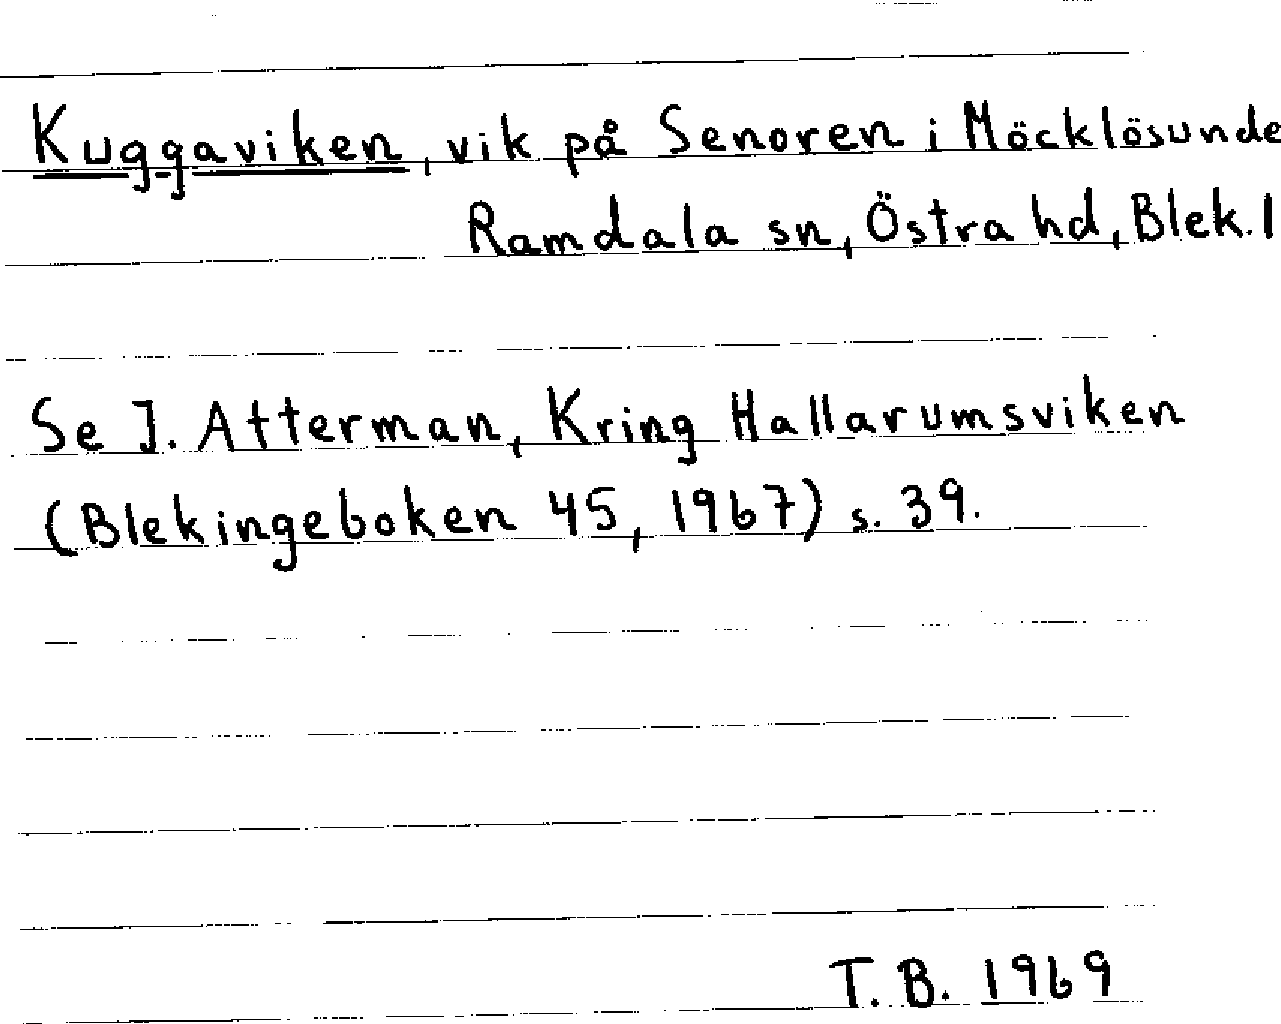 Kuggaviken, vik på Senoren i Möcklösunde
Ramdala sn, Östra hd, Blek. l
Se I. Atterman, Kring Hallarumsviken
(Blekingeboken 45, 1967) s. 39.
T. B. 1969